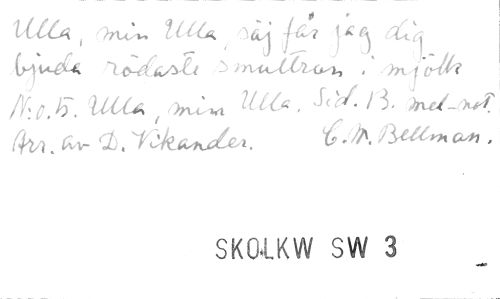 Ulla, min Ulla, säj får jag dig
bjuda rödaste smultron i mjölk
N:o.5. Ulla, min Ulla. Sid. 13. mel-not.
Arr. av D. Vikander. C. M. Bellman.
SKOLKW SW 3